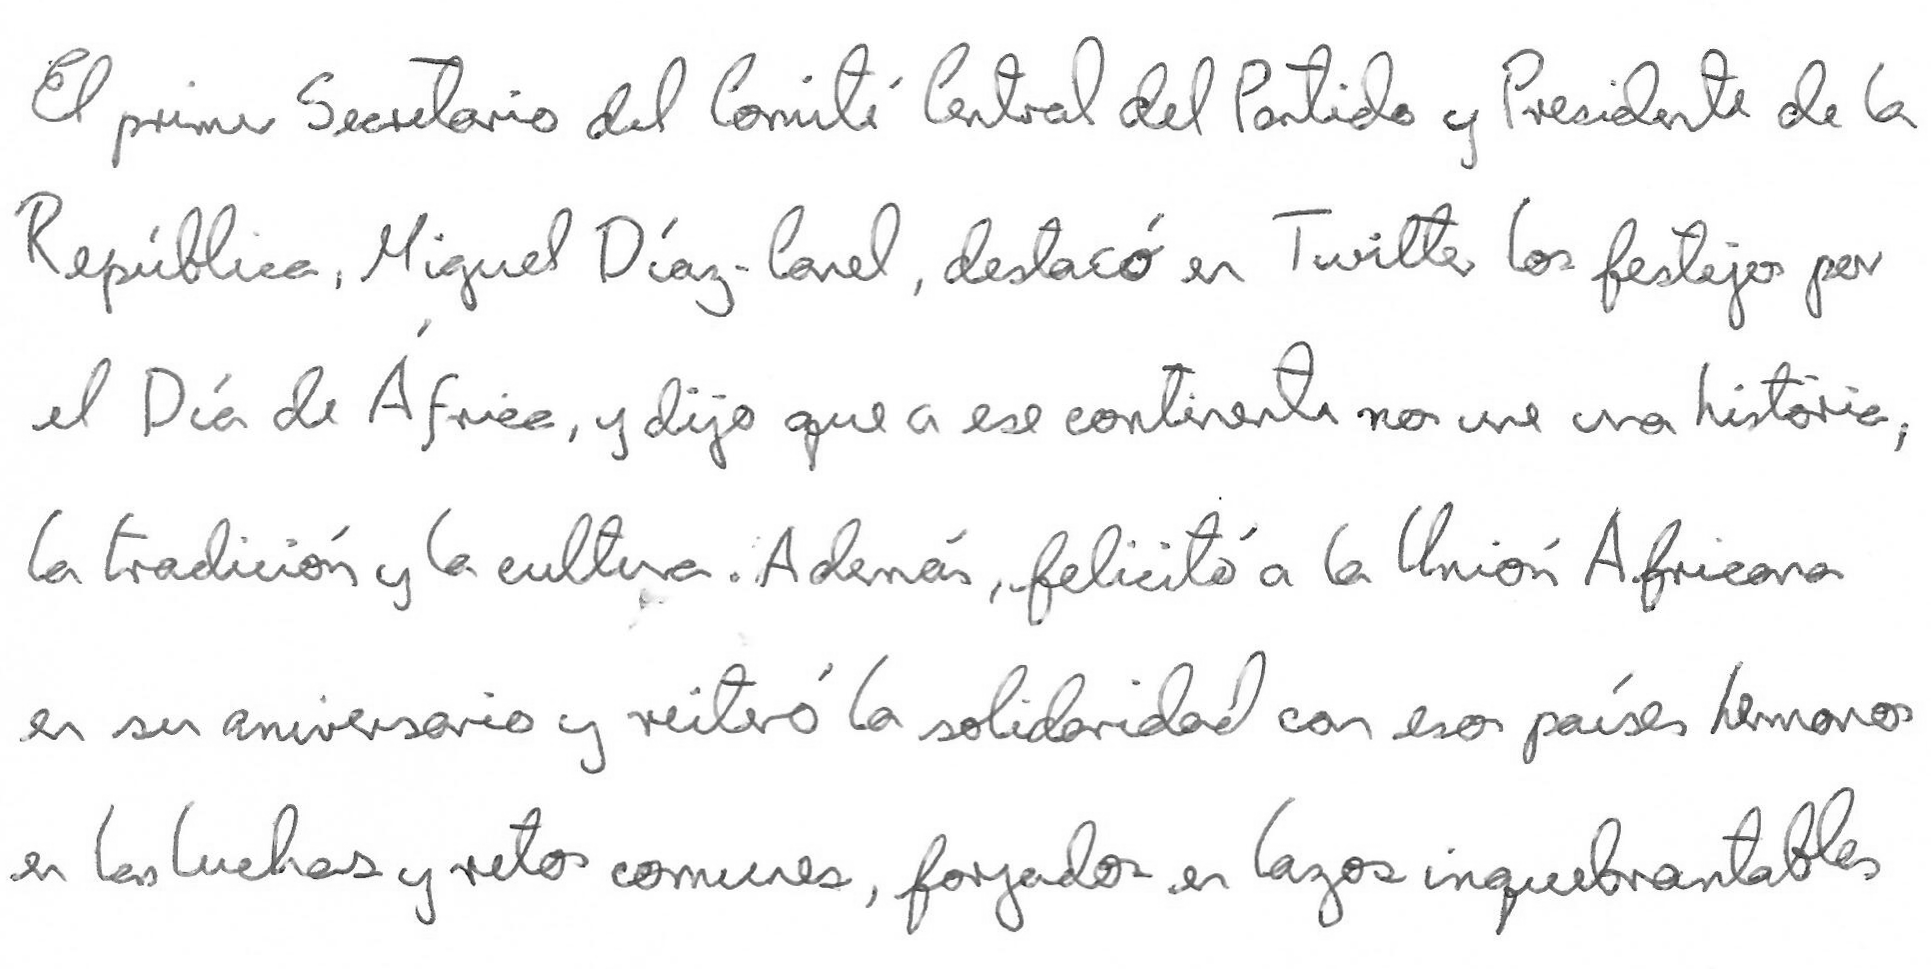 El primer Secretario del Comité Central del Partido y Presidente de la
República, Miguel Díaz-Canel, destacó en Twitter los festejos por
el Día de África, y dijo que a ese continente nos une una historia,
la tradición y la cultura. Además, felicitó a la Unión Africana
en su aniversario y reiteró la solidaridad con esos países hermanos
en las luchas y retos comunes, forjados en lazos inquebrantables